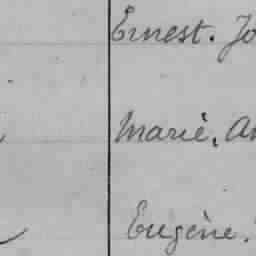 Ernest. Jo
Marie, An
Eugène.